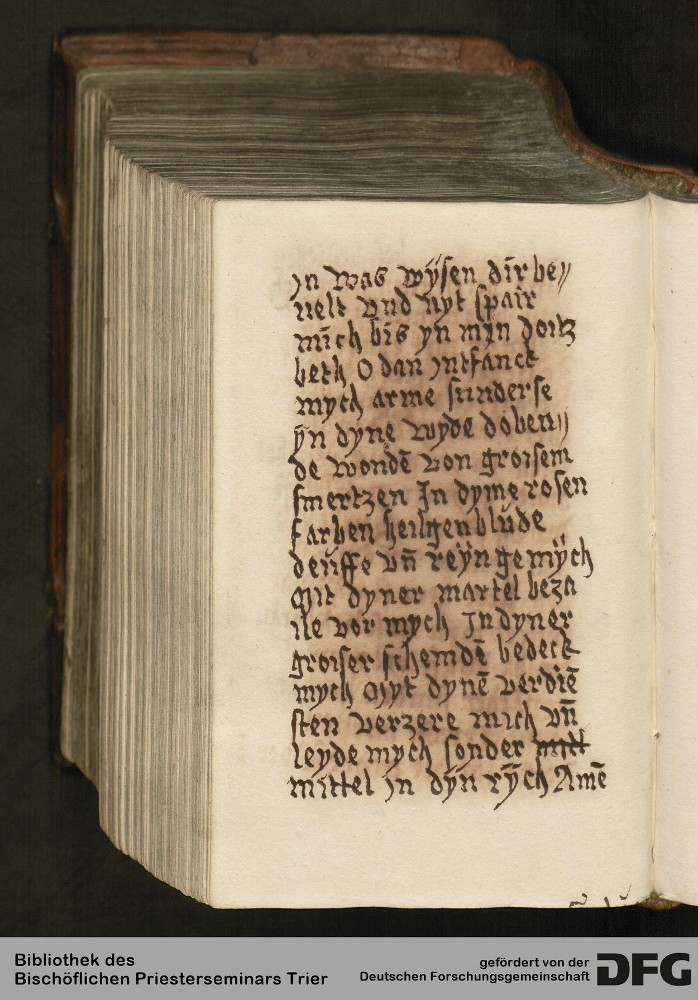 jn was wÿsen dir be〃
uelt vnd nyt spair
mich bis yn myn doitz
beth O dan jntfanck
mych arme sunderse
ÿn dyne wyde doben〃
de wondē von groisem
smertzen In dyme rosen
farben heilgen blude
deuffe vn̄ reÿnge mÿch
Mit dyner martel beza
ile vor mych In dyner
groiser schemdē bedeck
mych Myt dynē verdiē
sten verzere mich vn̄
leyde mych sonder mitt
mittel jn dÿn rÿch Amē
Bibliothek des
Bischöflichen Priesterseminars Trier
gefördert von der
Deutschen Forschungsgemeinschaft DFG